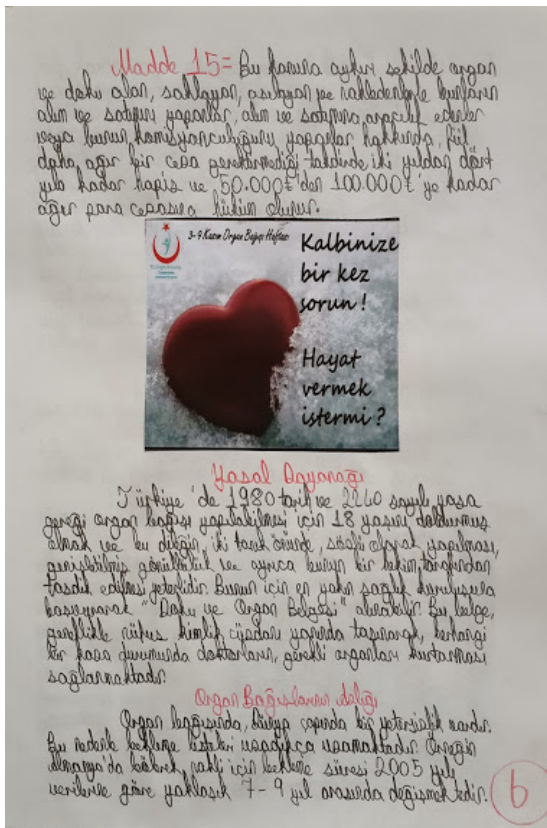 Madde 15= Bu kanuna aykırı şekilde organ
ve doku alan, saklayan, aşılayan ve nakledenlerle bunların
alım ve satımını yapanlar, alım ve satımına aracılık edenler
veya bunun komisyonculuğunu yapanlar hakkında, fiil
daha ağır bir ceza gerektirmediği takdirde iki yıldan dört
yıla kadar hapis ve 50.000₺'den 100.000₺'ye kadar
ağır para cezasına hüküm olunur.
3-9 Kasım Organ Bağışı Haftası
Kalbinize
bir kez
sorun!
Hayat
vermek
istermi?
Yasal Dayanağı
Türkiye'de 1980 tarih ve 2240 sayılı yasa
gereği organ bağışı yapılabilmesi için 18 yaşını doldurmuş
olmak ve bu dileğin, iki tanık önünde, sözlü olarak yapılması,
gönüllülük ve ayrıca bunun bir hekim tarafından
tasdik edilmesi yeterlidir. Bunun için en yakın sağlık kuruluşuna
başvurarak "Doku ve Organ Belgesi" alınabilir. Bu belge,
nüfus kimlik cüzdanı yanında taşınarak, herhangi
bir kaza durumunda doktorların, gerekli organları kurtarması
sağlanmaktadır.
Organ Bağışlarının Azlığı
Organ bağışında, Dünya çapında bir yetersizlik vardır.
Bu nedenle bekleme listeleri uzadıkça uzamaktadır. Örneğin
Almanya'da böbrek nakli için bekleme süresi 2005 yılı
verilerine göre yaklaşık 7-9 yıl arasında değişmektedir.
6